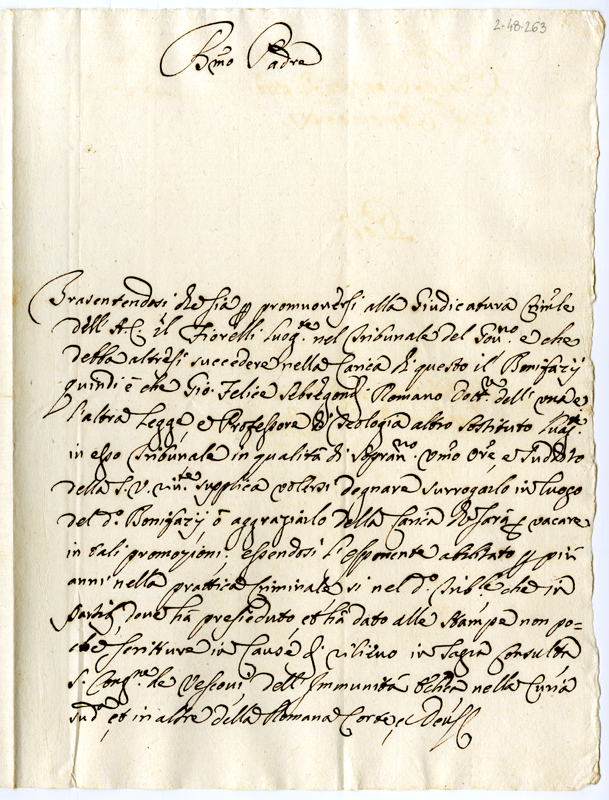 2-48-263
Bmo Padre
Presentendosi che sia p promuoversi alla Giudicatura Civile
dell'AC. il Fiorelli luogte nel Tribunale del Govno e che
debba altresì succedere nella Carica di questo il Bonifazij
quindi è che Gio: Felice Romano Dottre dell'una e
l'altra Legge e Professore di Teologia altro sostituto luogte
in esso Tribunale in qualità di umo Ore e Suddito
della S. V. supplica volersi degnare surrogarlo in luogo
del do Bonifazij ò aggraziarlo della Carica che sarà p vacare
in tali promozioni, essendosi l'esponente abilitato p più
anni nella prattica Criminale sì nel do Trible che in
dove hà presieduto, et hà dato alle stampe non po=
che scritture in Cause di rilievo in Sagra Consulta
S. Congne de Vescovi, dell'Immunità nella Curia
sudta et in altre della Romana Corte, e